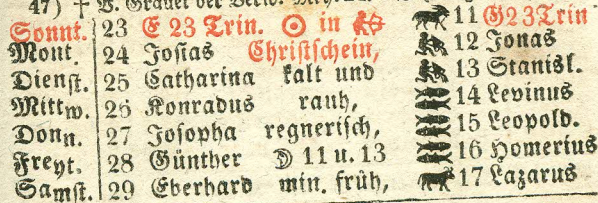 47) † P. Grauet der
Sonnt. 23 E 23 Trin. ☉ in 11 G23Trin
Mont. 24 Josias Christschein, 12 Jonas
Dienst. 25 Catharina kalt und 13 Stanisl.
Mittw. 26 Konradus rauh, 14 Levinus
Donn. 27 Josopha regnerisch, 15 Leopold.
Freyt. 28 Günther ☽ 11 u. 13 16 Homerius
Samst. 29 Eberhard min. früh, 17 Lazarus